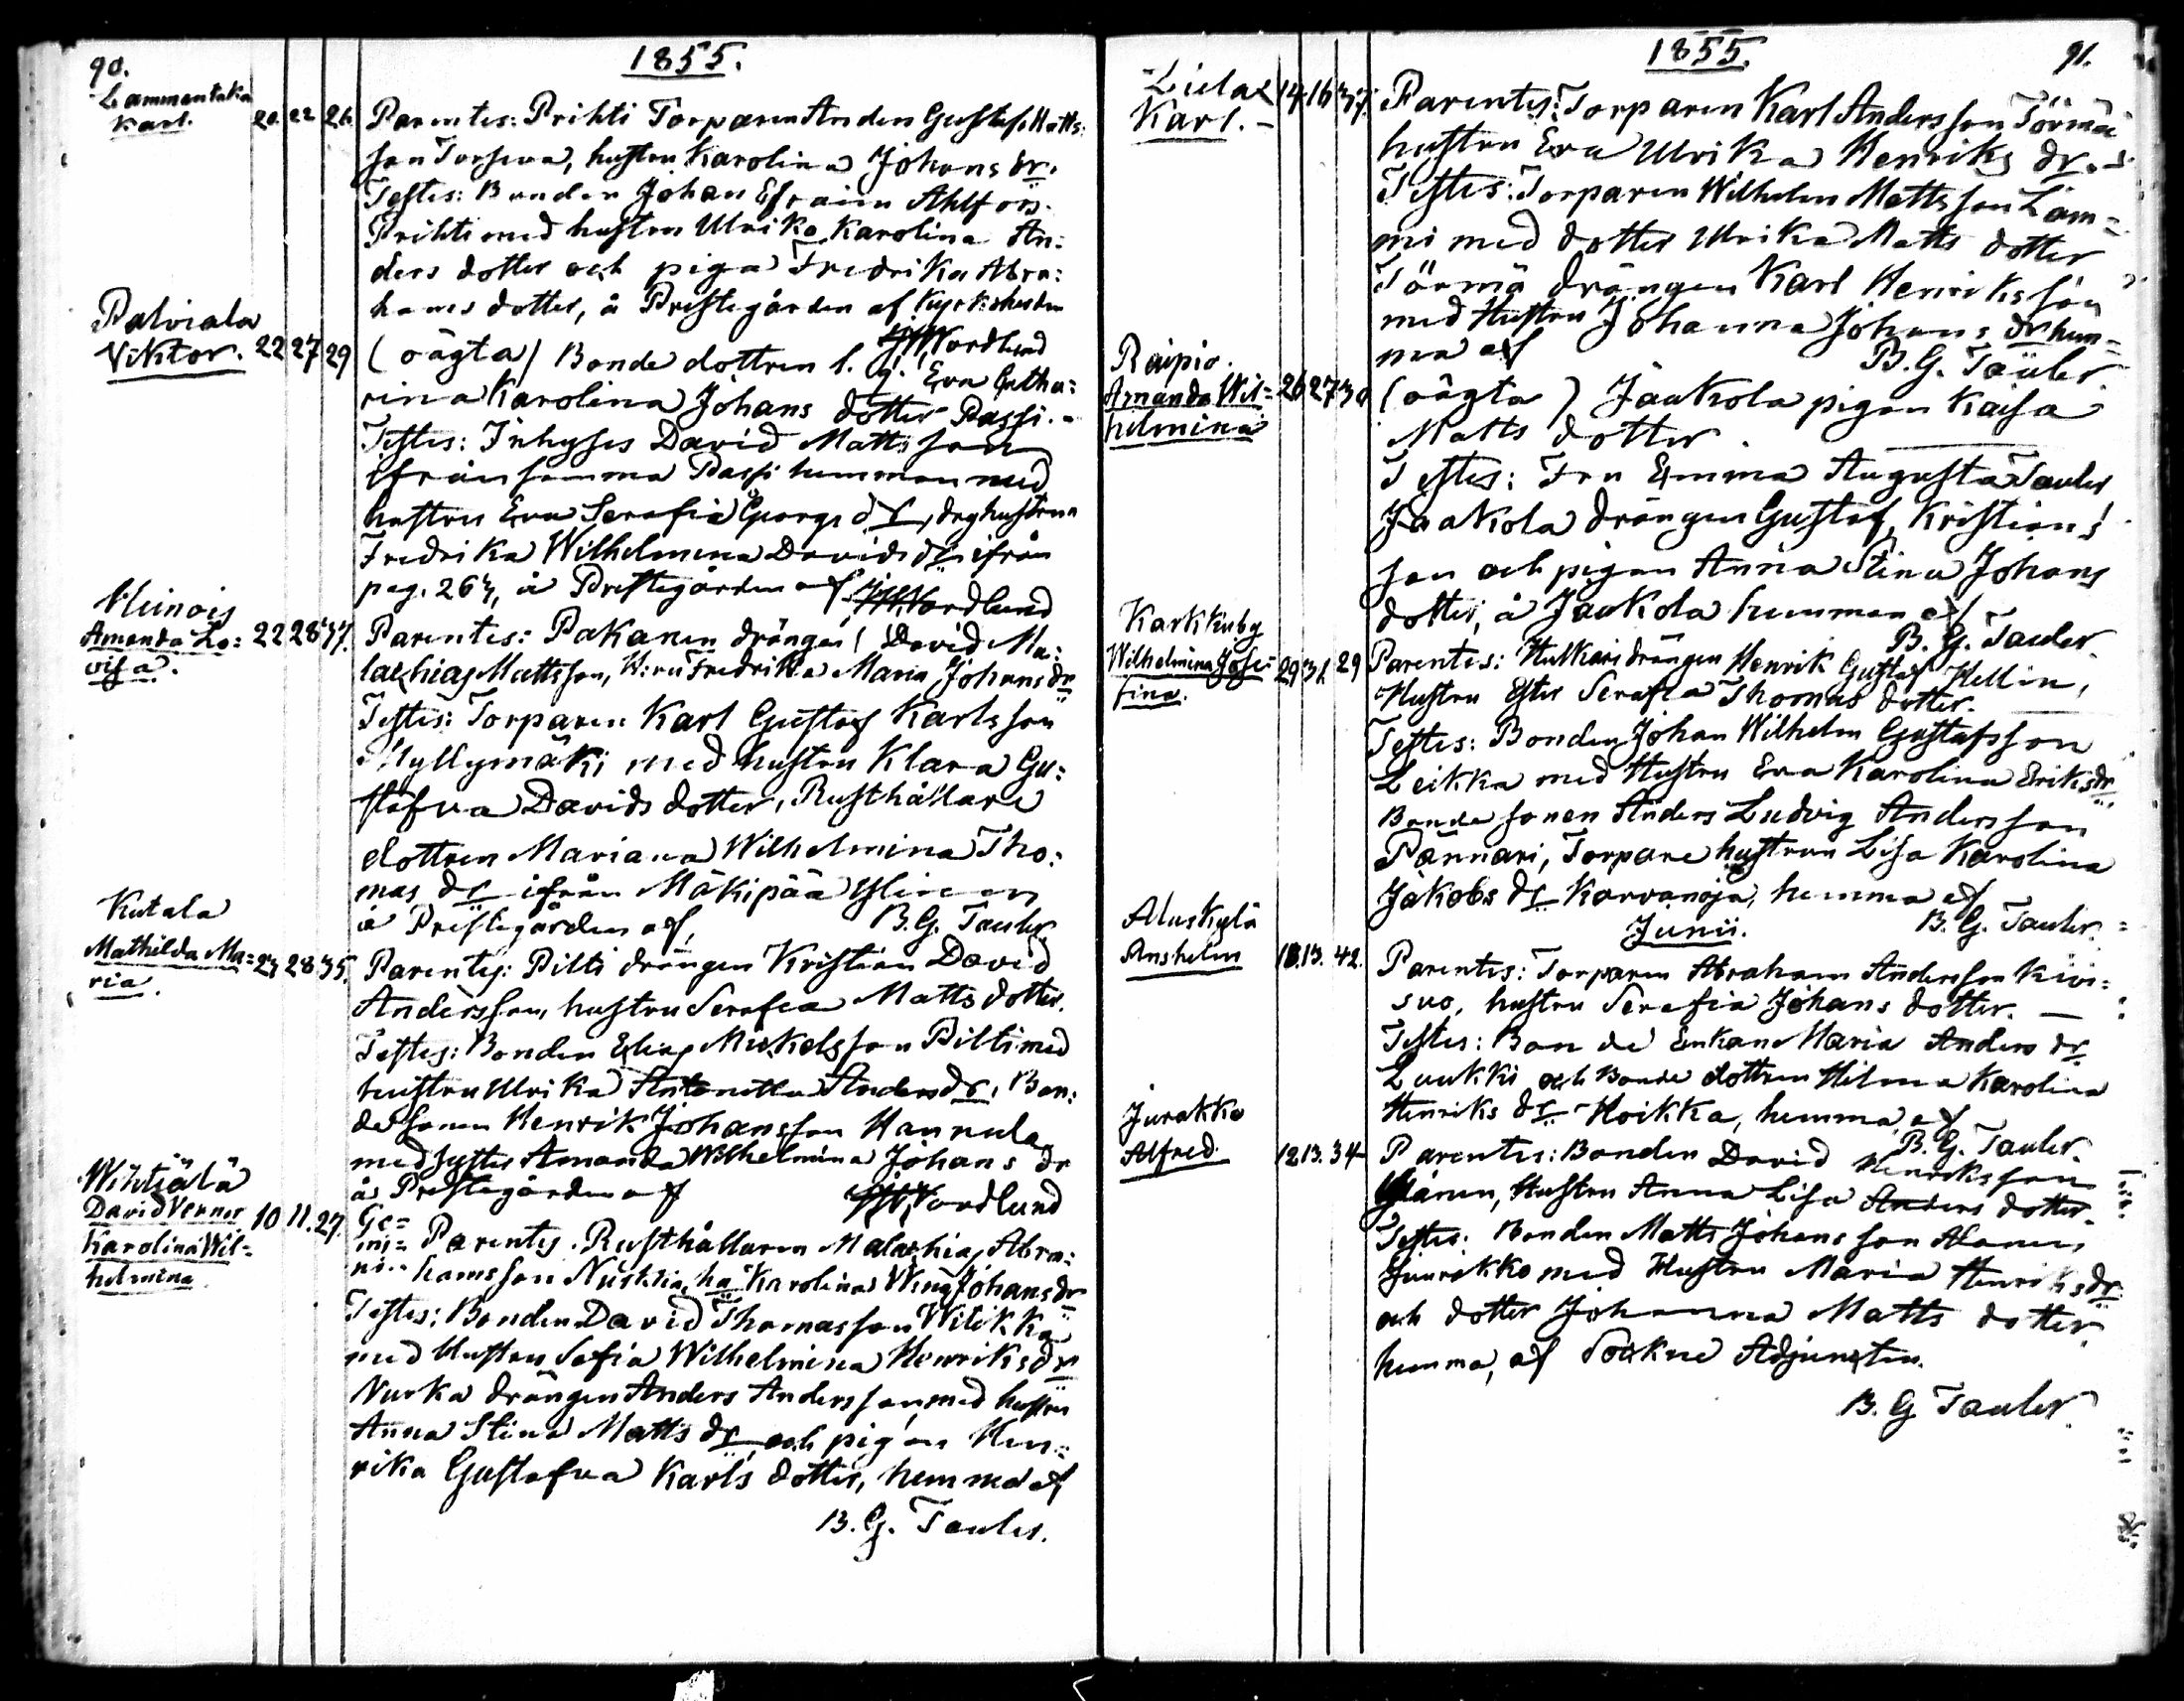 90.
1855.
Lammentaka
Karl. 20 22 26.
Parentes: Prihti Torparen Anders Gustaf Matts:
son Torseva, hustru Karolina Johans dr.
Testes: Bonden Johan Efraim Ahlfors.
Prihti med hustru Ulrika Karolina An:
ders dotter och piga Fredrika Abra:
hams dotter, å Prestegården af Kyrkoherden
Nordlund
Palviala
Viktor. 22 27 29
(oägta) Bonde dottren l. q. Eva Catha:
rina Karolina Johans dotter Passi.-
Testes: Inhyses David Mattsson
ifrån samma Passi hemman med
hustru Eva Serafia Georgs dr, drg hustrun
Fredrika Wilhelmina Davids dr ifrån
pag. 264, å Prestegården af Nordlund
Heinois
Amanda Lo: 22 28 37.
visa.
Parentes: Pakanen drängen David Ma:
lachias Mattsson, H:ru Fredrika Maria Johans dr
Testes: Torparen Karl Gustaf Karlsson
Myllymäki med hustru Klara Gu:
stafva Davids dotter, Rusthållare
dottren Mariana Wilhelmina Tho:
mas dr ifrån Mäkipää Ylinen
å Prestegården af, B.G. Tauler
Kutala
Mathilda Ma= 23 28 35.
ria.
Parentes: Pilti drängen Kristian David
Andersson, hustru Serafia Matts dotter.
Testes: Bonden Elias Mickelsson Pilti med
hustru Ulrika Antonetta Anders dr, Bon:
de sonen Henrik Johansson Hannula
med syster Amanda Wilhelmina Johans dr
å Prestegården af Nordlund
Wihtiälä
David Verner 10 11. 27.
Karolina Wil=
helmina
Ge=
mi=
ni..
Parentes. Rusthållaren Malachias Abra:
hamsson Nuhtia, hu Karolina Wilh Johans dr
Testes: Bonden David Thomasson Witikka
med Hustru Sofia Wilhelmina Henriks dr
Nurka drängen Anders Andersson, med hustru
Anna Stina Matts dr, och pigan Hen=
rika Gustafva Karls dotter, hemma af
B. G. Tauler.
1855.
91.
Liela
Karl. - 14 16 37.
Parentes: Torparen Karl Andersson Törmä
hustru Eva Ulrika Henriks dr. -
Testes: Torparen Wilhelm Mattsson Lam=
mi med dotter Ulrika Matts dotter
Törmä drängen Karl Henriksson
med Hustru Johanna Johans dr hem=
ma af B.G. Tauler.
Raipio.
Amanda Wil= 26 27 30
helmina
(oägta) Jaakola pigan Kaisa
Matts dotter.
Testes: Fru Emma Augusta Tauler
Jaakola drängen Gustaf Kristians
son och pigan Anna Stina Johans
dotter, å Jaakola hemman af
B. G. Tauler.
Karkkuby
Wilhelmina Jose= 29 31. 29
fina.
Parentes: Hulkari drängen Henrik Gustaf Hellin,
Hustru Ester Serafia Thomas dotter.
Testes: Bonden Johan Wilhelm Gustafsson
Leikka med Hustru Eva Karolina Eriks dr,
Bonde sonen Anders Ludvig Andersson
Pännäri, Torpare hustrun Lisa Karolina
Jakobs dr Karvanoja, hemma af
B. G. Tauler.
Junii.
Aluskylä
Anshelm 10. 13. 42.
Parentes: Torparen Abraham Andersson Kivi=
suo, hustru Serafia Johans dotter. —
Testes: Bonde Enkan Maria Anders dr
Luukki och Bonde dottren Hilma Karolina
Henriks dr Hoikka, hemma, af
B. G. Tauler.
Jurakko
Alfred. 12 13. 34
Parentes: Bonden David Henriksson
Ylänen, Hustru Anna Lisa Anders dotter.
Testes: Bonden Matts Johansson Alanen
Juurakko med Hustru Maria Henriks dr
och dotter Johanna Matts dotter,
hemma, af Sockne Adjuncten.
B. G Tauler.